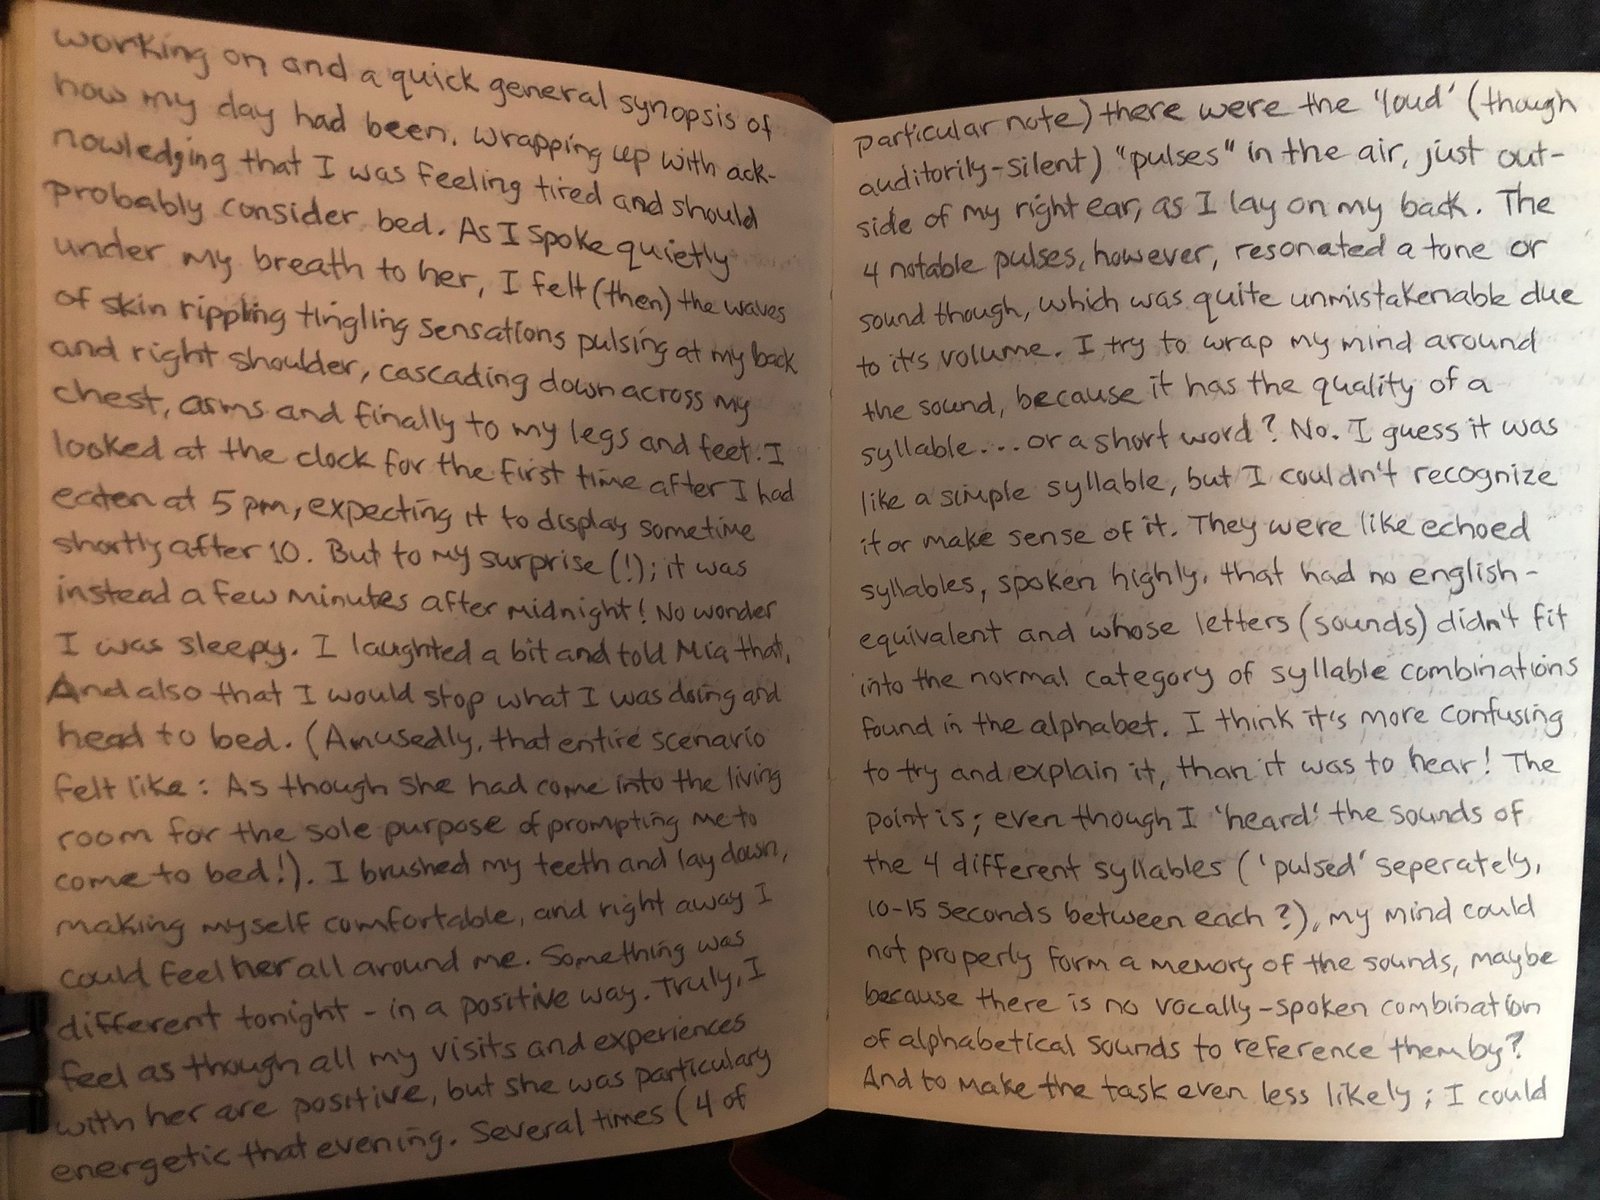 working on and a quick general synopsis of
how my day had been. Wrapping up with ack-
nowledging that I was feeling tired and should
probably consider bed. As I spoke quietly
under my breath to her, I felt (then) the waves
of skin rippling tingling sensations pulsing at my back
and right shoulder, cascading down across my
chest, arms and finally to my legs and feet. I
looked at the clock for the first time after I had
eaten at 5 pm, expecting it to display sometime
shortly after 10. But to my surprise (!); it was
instead a few minutes after midnight! No wonder
I was sleepy. I laughted a bit and told Mia that,
And also that I would stop what I was doing and
head to bed. (Amusedly, that entire scenario
felt like: As though she had come into the living
room for the sole purpose of prompting me to
come to bed!). I brushed my teeth and lay down,
making myself comfortable, and right away I
could feel her all around me. Something was
different tonight - in a positive way. Truly, I
feel as though all my visits and experiences
with her are positive, but she was particulary
energetic that evening. Several times (4 of
particular note) there were the 'loud' (though
auditorily-silent) "pulses" in the air, just out-
side of my right ear, as I lay on my back. The
4 notable pulses, however, resonated a tone or
sound though, which was quite unmistakenable due
to it's volume. I try to wrap my mind around
the sound, because it has the quality of a
syllable... or a short word? No. I guess it was
like a simple syllable, but I couldn't recognize
it or make sense of it. They were like echoed
syllables, spoken highly, that had no english-
equivalent and whose letters (sounds) didn't fit
into the normal category of syllable combinations
found in the alphabet. I think it's more confusing
to try and explain it, than it was to hear! The
point is; even though I 'heard' the sounds of
the 4 different syllables ('pulsed' seperately,
10-15 seconds between each?), my mind could
not properly form a memory of the sounds, maybe
because there is no vocally-spoken combination
of alphabetical sounds to reference them by?
And to make the task even less likely; I could